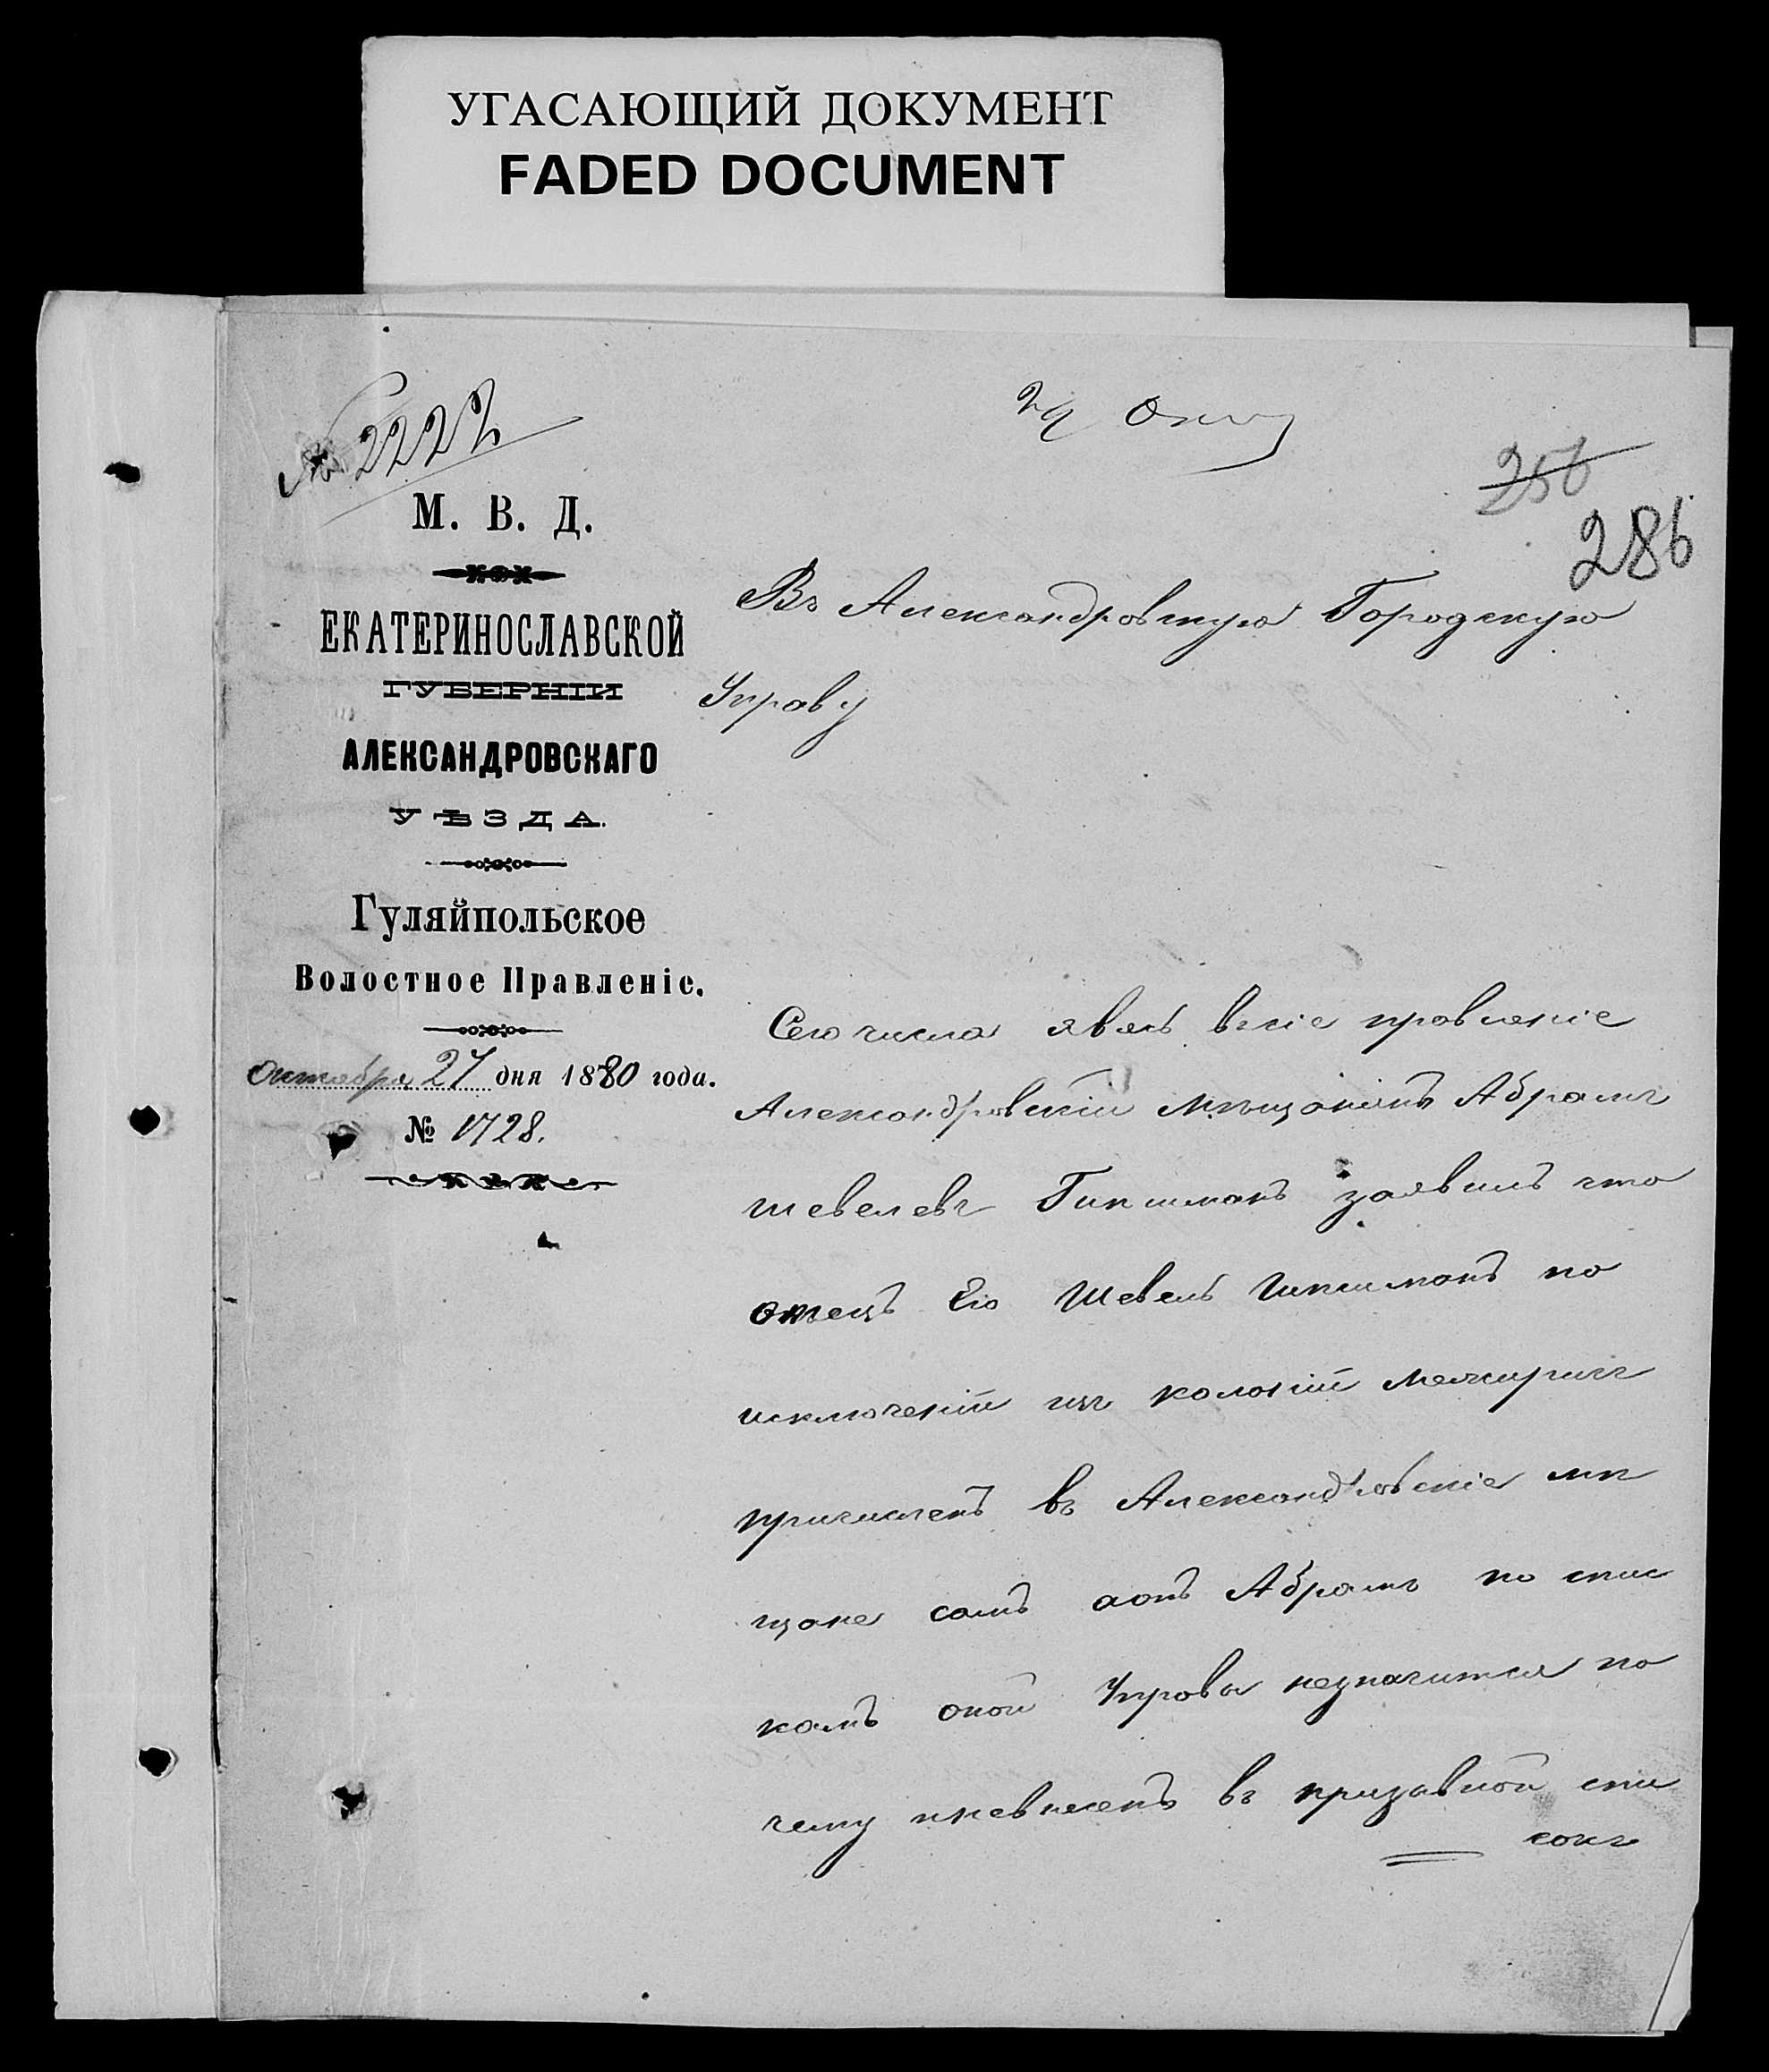 УГАСАЮЩИЙ ДОКУМЕНТ
FADED DOCUMENT
№ 2222
29 Окт
256
286
М. В. Д.
ЕКАТЕРИНОСЛАВСКОЙ
ГУБЕРНІИ
АЛЕКСАНДРОВСКАГО
УѢЗДА.
Гуляйпольское
Волостное Правленіе.
Октября 27 дня 1880 года.
№ 1728.
Въ Александровскую Городскую
Управу
Сего числа явясь всіе правленіе
Александровскій мѣщанинъ Абрамъ
Шевелевъ Гипшманъ заявилъ что
отецъ Его Шевель Гипшманъ по
исключеніи изъ колоніи Межиричъ
причисленъ въ Александровскіе мѣ
щане самъ аонъ Абрамъ по спис
камъ оной Управы незначится по
чему невнесенъ въ призывной спи
сокъ